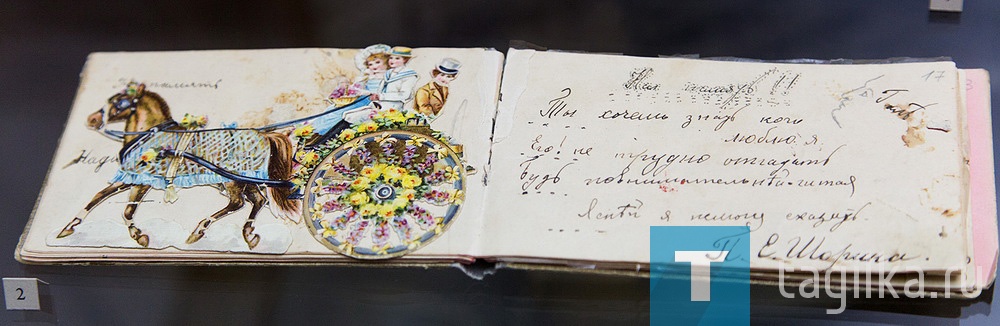 На память
Нади
На память!!
17
Ты хочешь знать кого
люблю я.
Его! не трудно отгадать
Будь повнимательнѣй читая
Яснѣй я немогу сказать.
П. Е. Шорина.
2
T tagilka.ru